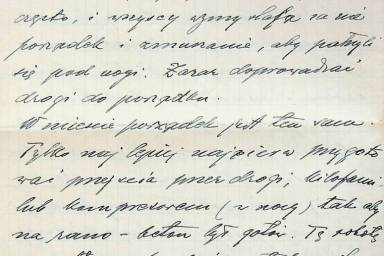 często, i wszyscy
porządek i                aby patrzyli
się pod nogi. Zaraz doprowadzać
drogi do porządku.
W mieście porządek jest ten sam.
Tylko najlepiej najpierw przygoto
wać przejścia przez drogi, kilofami
lub kompresorem (w nocy) tak aby
na rano – beton był gotów. Tę robotę